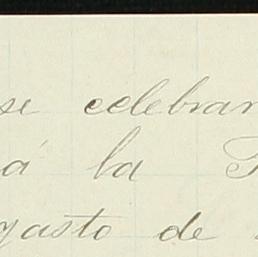 se celebrar
á la
gasto de